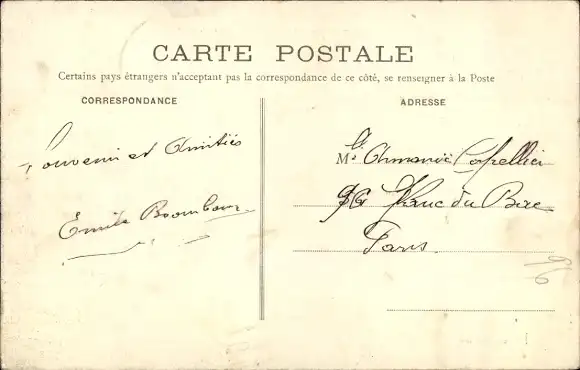 CARTE POSTALE
Certains pays étrangers n'acceptant pas la correspondance de ce côté, se renseigner à la Poste
CORRESPONDANCE
ADRESSE
Souvenir et Amitiés
Emile
Mr
96
du Bac
Paris
96